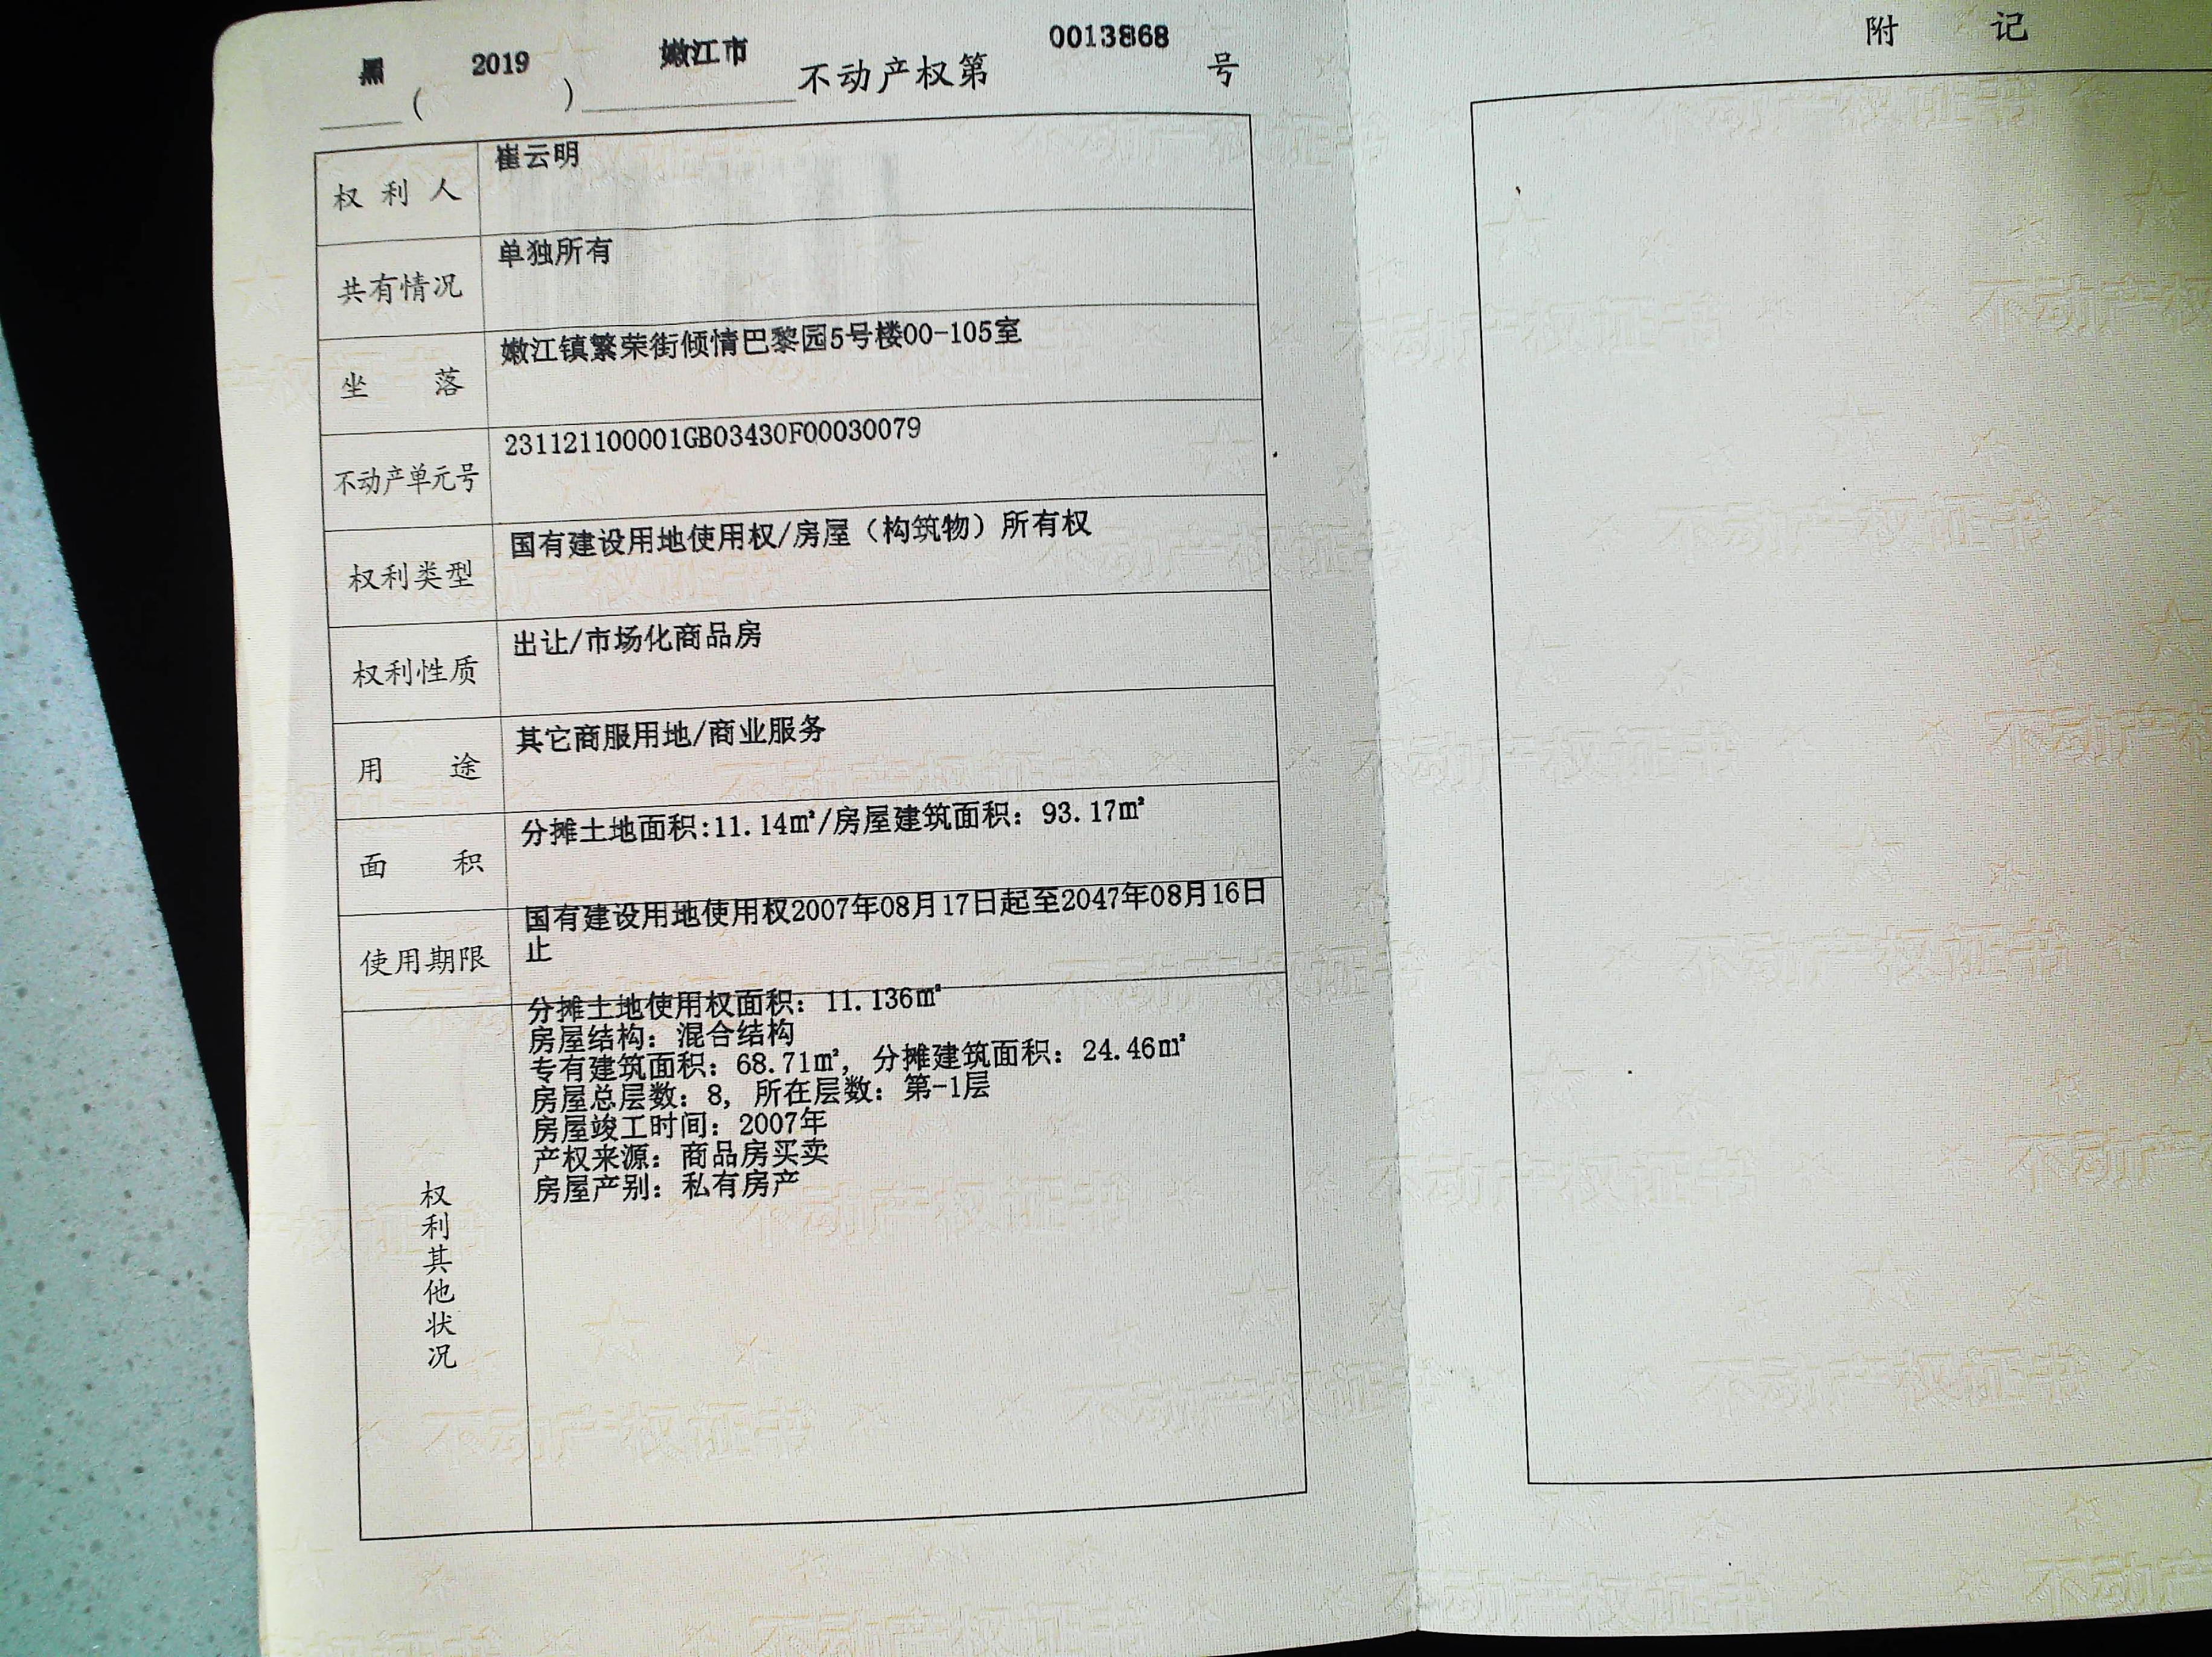 黑（2019）嫩江市不动产权第0013868号
权利人 崔云明
共有情况 单独所有
坐落 嫩江镇繁荣街倾情巴黎园5号楼00-105室
不动产单元号 231121100001GB03430F00030079
权利类型 国有建设用地使用权/房屋（构筑物）所有权
权利性质 出让/市场化商品房
用途 其它商服用地/商业服务
面积 分摊土地面积:11.14㎡/房屋建筑面积：93.17㎡
使用期限 国有建设用地使用权2007年08月17日起至2047年08月16日
止
权利其他状况
分摊土地使用权面积：11.136㎡
房屋结构：混合结构
专有建筑面积：68.71㎡，分摊建筑面积：24.46㎡
房屋总层数：8，所在层数：第-1层
房屋竣工时间：2007年
产权来源：商品房买卖
房屋产别：私有房产
附记